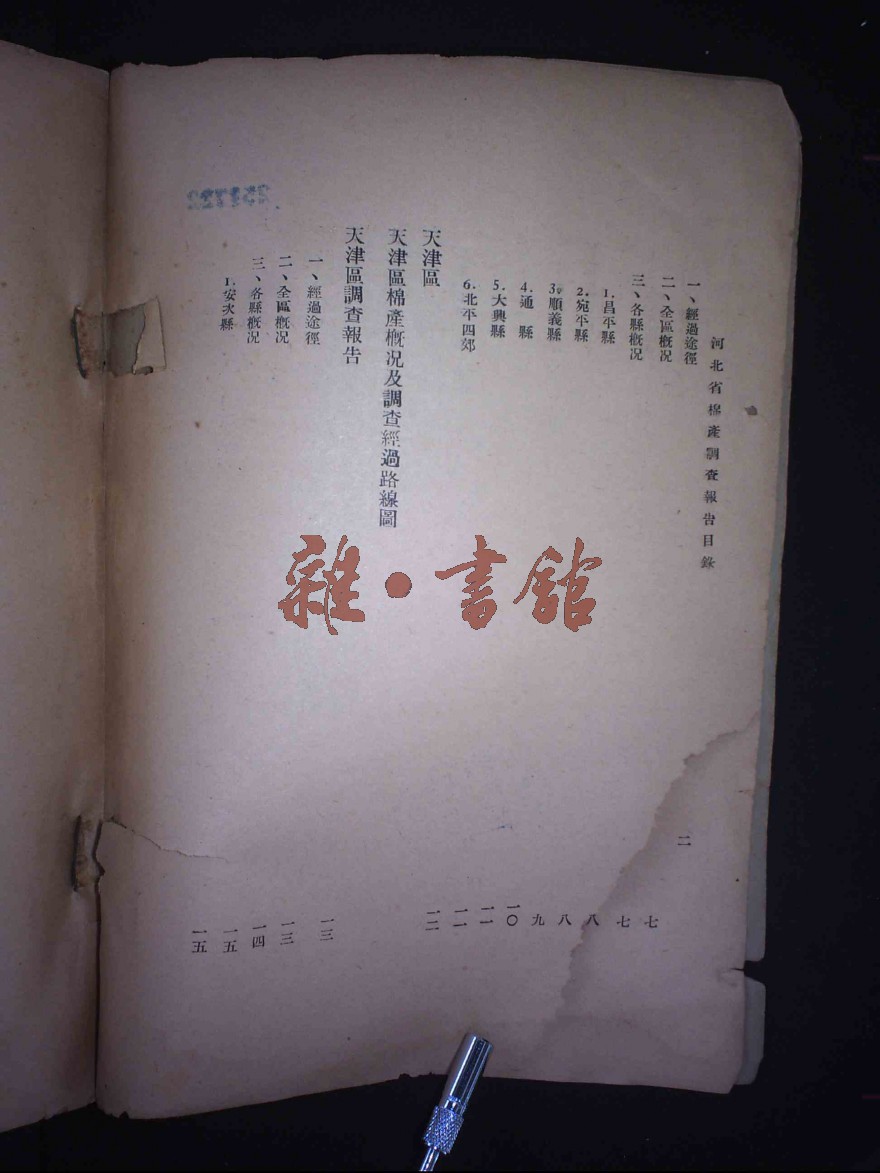 河北省棉產調查報告目錄
二
一、經過途徑 七
二、全區槪况 七
三、各縣槪况 八
1.昌平縣 八
2.宛平縣 九
3.順義縣 一〇
4.通縣 一一
5.大興縣 一一
6.北平四郊 一二
天津區
天津區棉產槪况及調查經過路線圖
天津區調查報告 一三
一、經過途徑 一三
二、全區槪况 一四
三、各縣槪况 一五
1.安次縣 一五
雜·書館